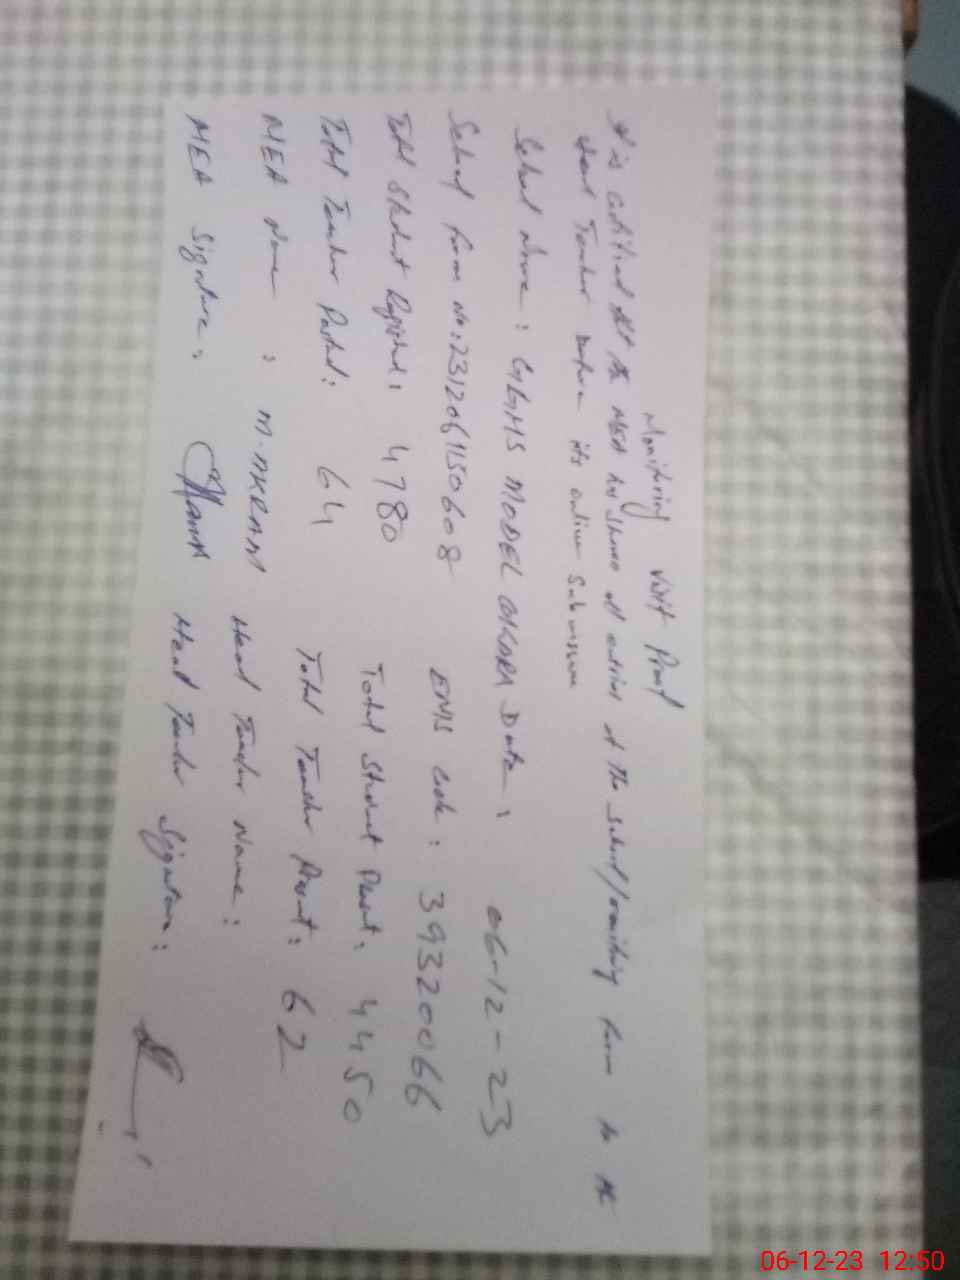 Monitoring visit Proof
It is certified that the MEA has shown all entries of the school/monitoring form to the
Head Teacher before its online submission
School Name : GGHS MODEL OKARA Date : 06-12-23
School form No: EMIS code : 39320066
Total Student Registered : 4780 Total Student Present : 4450
Total Teacher Posted : 64 Total Teacher Present : 62
MEA Name : M. AKRAM Head Teacher Name :
MEA Signature : Head Teacher Signature :
06-12-23 12:50